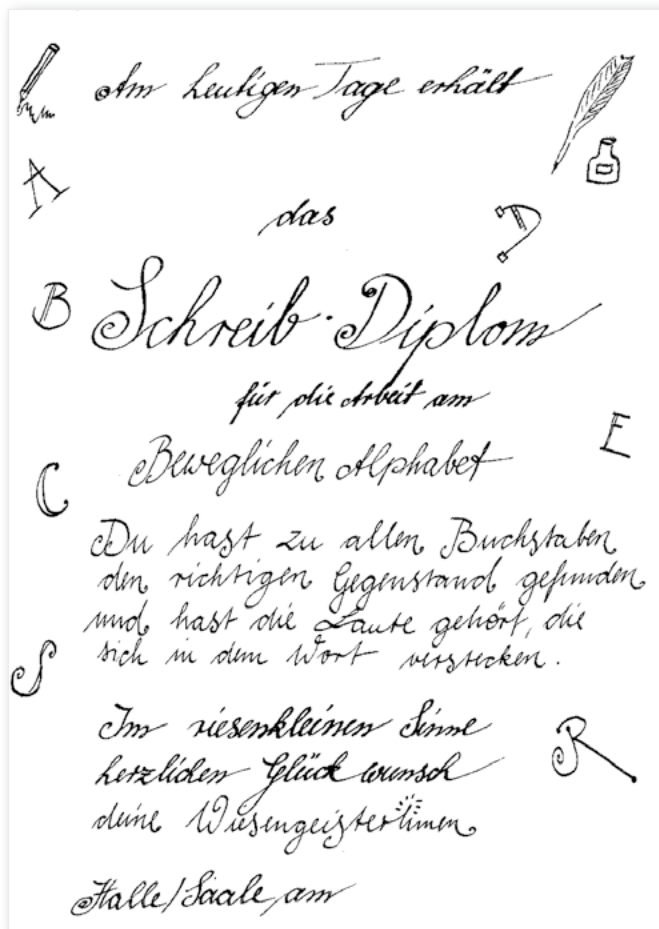 Am heutigen Tage erhält
A
das
D
B
Schreib-Diplom
für die Arbeit am
E
Beweglichen Alphabet
C
Du hast zu allen Buchstaben
den richtigen Gegenstand gefunden
und hast die Laute gehört, die
sich in dem Wort verstecken.
S
Im riesenkleinen Sinne
R
herzlichen Glückwunsch
deine Wiesengeisterlinnen
Halle/Saale, am